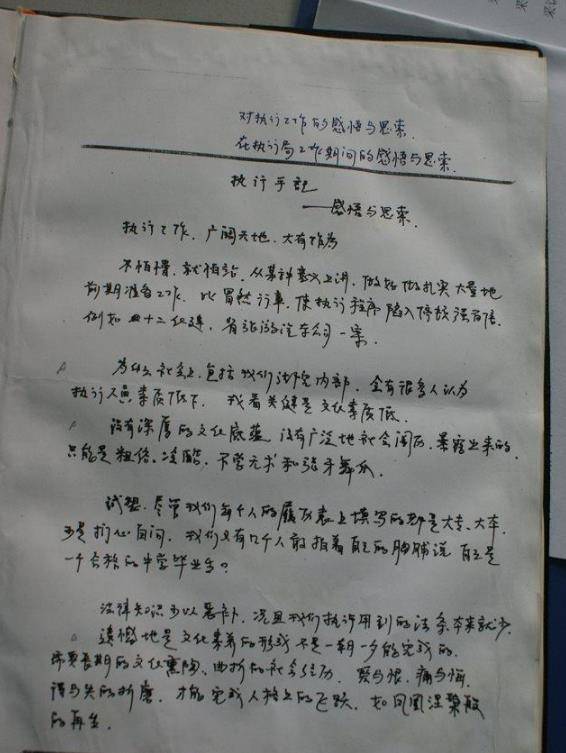 对执行工作的感悟与思索.
在执行局工作期间的感悟与思索.
执行手记
——感悟与思索.
执行工作,广阔天地,大有作为
不怕慢,就怕站,从某种意义上讲,做好做扎实大量地
前期准备工作,比冒然行事,使执行程序陷入停顿强百倍.
例如 十二化建,省旅游汽车公司一案.
为什么社会上,包括我们法院内部,会有很多人认为
执行人员素质低下,我看关键是文化素质低.
没有深厚的文化底蕴,没有广泛地社会阅历,暴露出来的
只能是粗俗、冷酷,不学无术和张牙舞爪.
试想,尽管我们每个人的履历表上填写的都是大专、大本,
可是扪心自问,我们又有几个人敢拍着自己的胸脯说 自己是
一个合格的中学毕业生?
法律知识可以恶补,况且我们执行用到的法条本来就少.
遗憾地是文化素养的形成不是一朝一夕能完成的.
需要长期的文化熏陶、曲折的社会经历,爱与恨,痛与悔,
得与失的折磨,才能完成人格上的飞跃,如凤凰涅槃般
的再生.